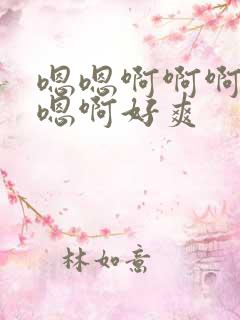 嗯嗯啊啊啊
嗯啊好爽
林如意